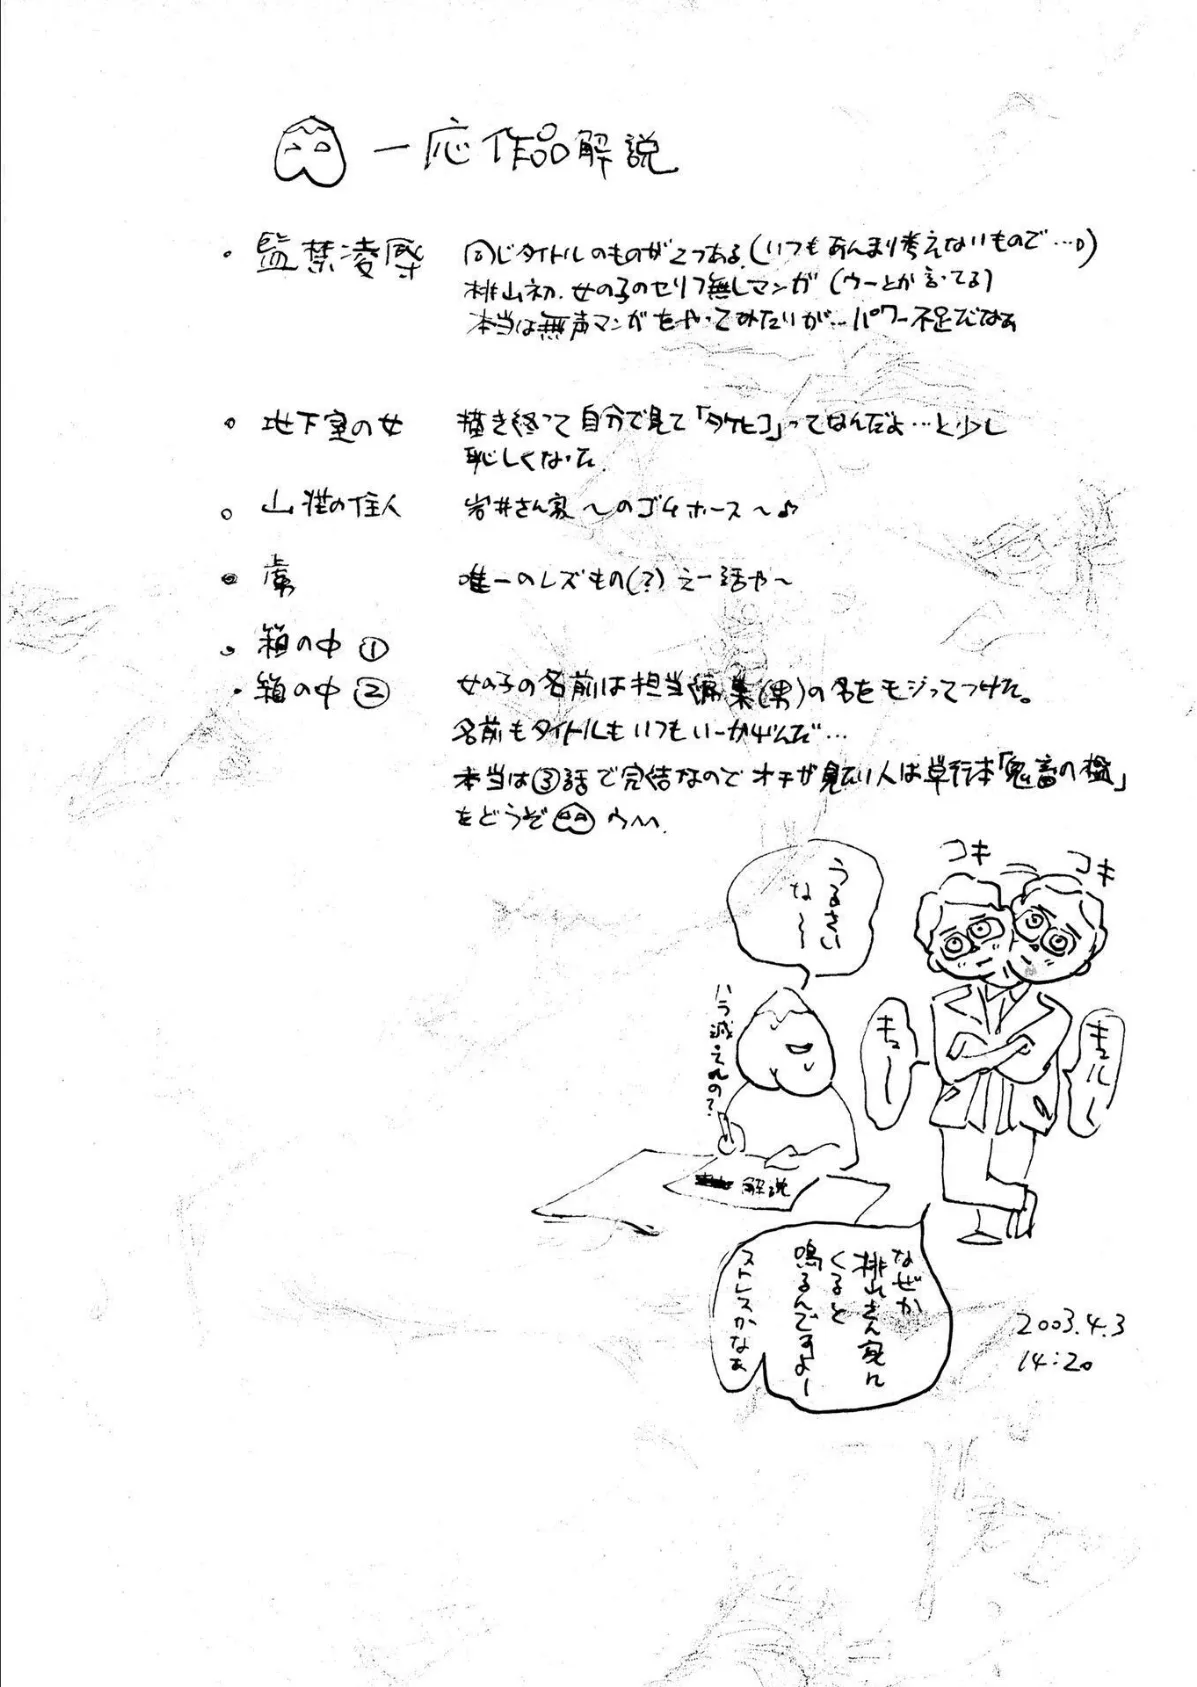 一応作品解説
・監禁凌辱 同じタイトルのものが2つある。(いつもあんまり考えないもので…。)
桃山初、女の子のセリフ無しマンガ(ウーとか言ってる)
本当は無声マンガをやってみたいが…パワー不足だなぁ
・地下室の女 描き終って自分で見て「タケヒコ」ってなんだよ…と少し
恥しくなった。
・山荘の住人 岩井さん家〜のゴムホース〜♪
・虜 唯一のレズもの(?)えー話や〜
・箱の中①
・箱の中② 女の子の名前は担当編集(男)の名をモジってつけた。
名前もタイトルもいつもいーかげんだ…
本当は③話で完結なのでオチが見たい人は単行本「鬼畜の檻」
をどうぞ ウハハ
コキ
コキ
うるさい
な〜〜
ハラ減ってんの?
キュー
キュルル
解説
なぜか
桃山さん家に
くると
鳴るんですよー
ストレスかなぁ
2003.4.3
14:20